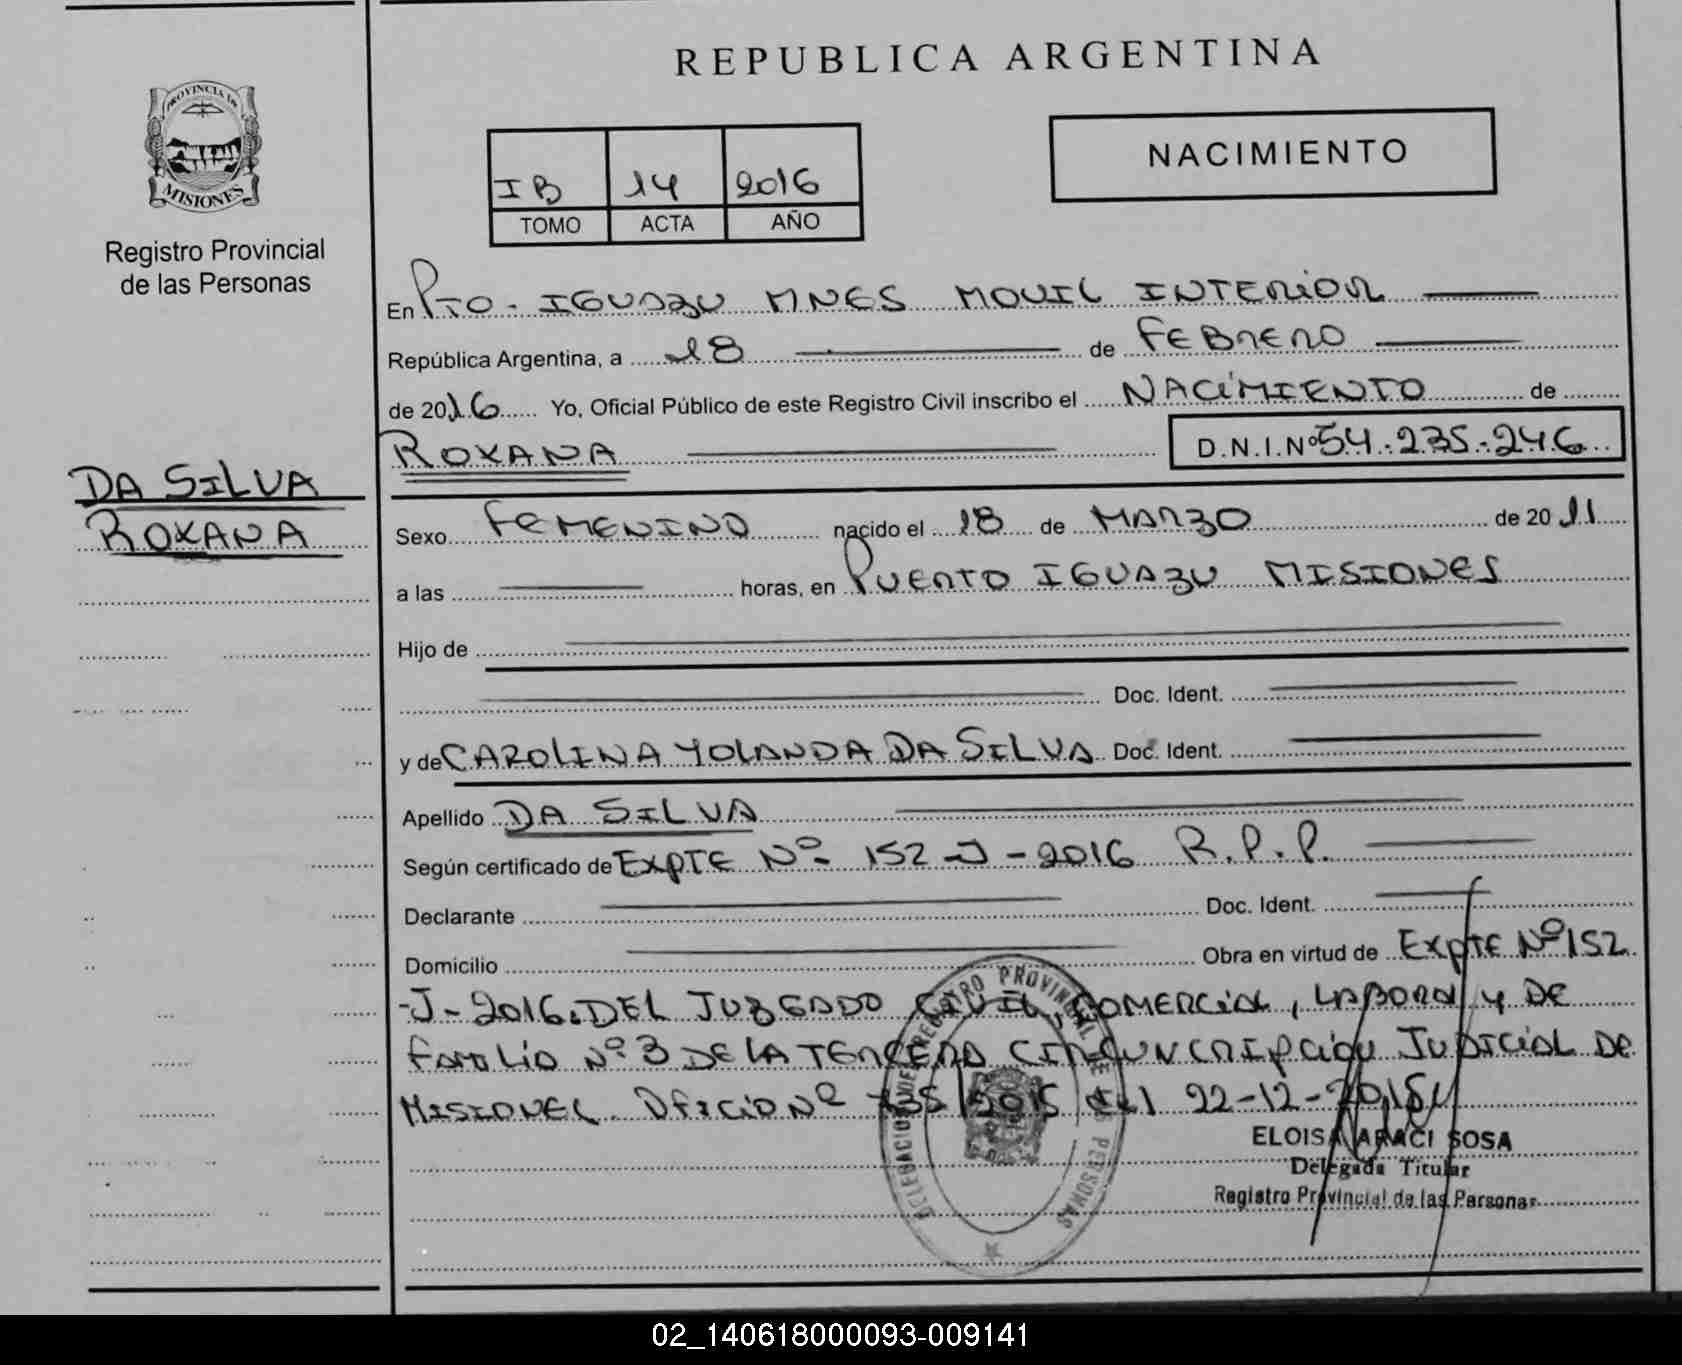 REPUBLICA ARGENTINA
PROVINCIA DE
MISIONES
Registro Provincial
de las Personas
IB 14 2016
TOMO ACTA AÑO
NACIMIENTO
En Pto. IGUAZU MNES MOVIL INTERIOR
República Argentina, a 18 de FEBRERO
de 2016 Yo, Oficial Público de este Registro Civil inscribo el NACIMIENTO de
ROXANA D.N.I.Nº 54.235.246
DA SILVA
ROXANA
Sexo FEMENINO nacido el 18 de MARZO de 2011
a las horas, en PUERTO IGUAZU MISIONES
Hijo de
Doc. Ident.
y de CAROLINA YOLANDA DA SILVA Doc. Ident.
Apellido DA SILVA
Según certificado de EXPTE Nº 152-J-2016 R.P.P.
Declarante Doc. Ident.
Domicilio Obra en virtud de EXPTE Nº 152
-J-2016. DEL JUZGADO CIVIL, COMERCIAL, LABORAL y DE
FAMILIA Nº 3 DE LA TERCERA CIRCUNCRIPCION JUDICIAL DE
MISIONES. OFICIO Nº 2015 del 22-12-2015
DELEGACION DEL REGISTRO PROVINCIAL DE LAS PERSONAS
ELOISA ARACI SOSA
Delegada Titular
Registro Provincial de las Personas
02_140618000093-009141